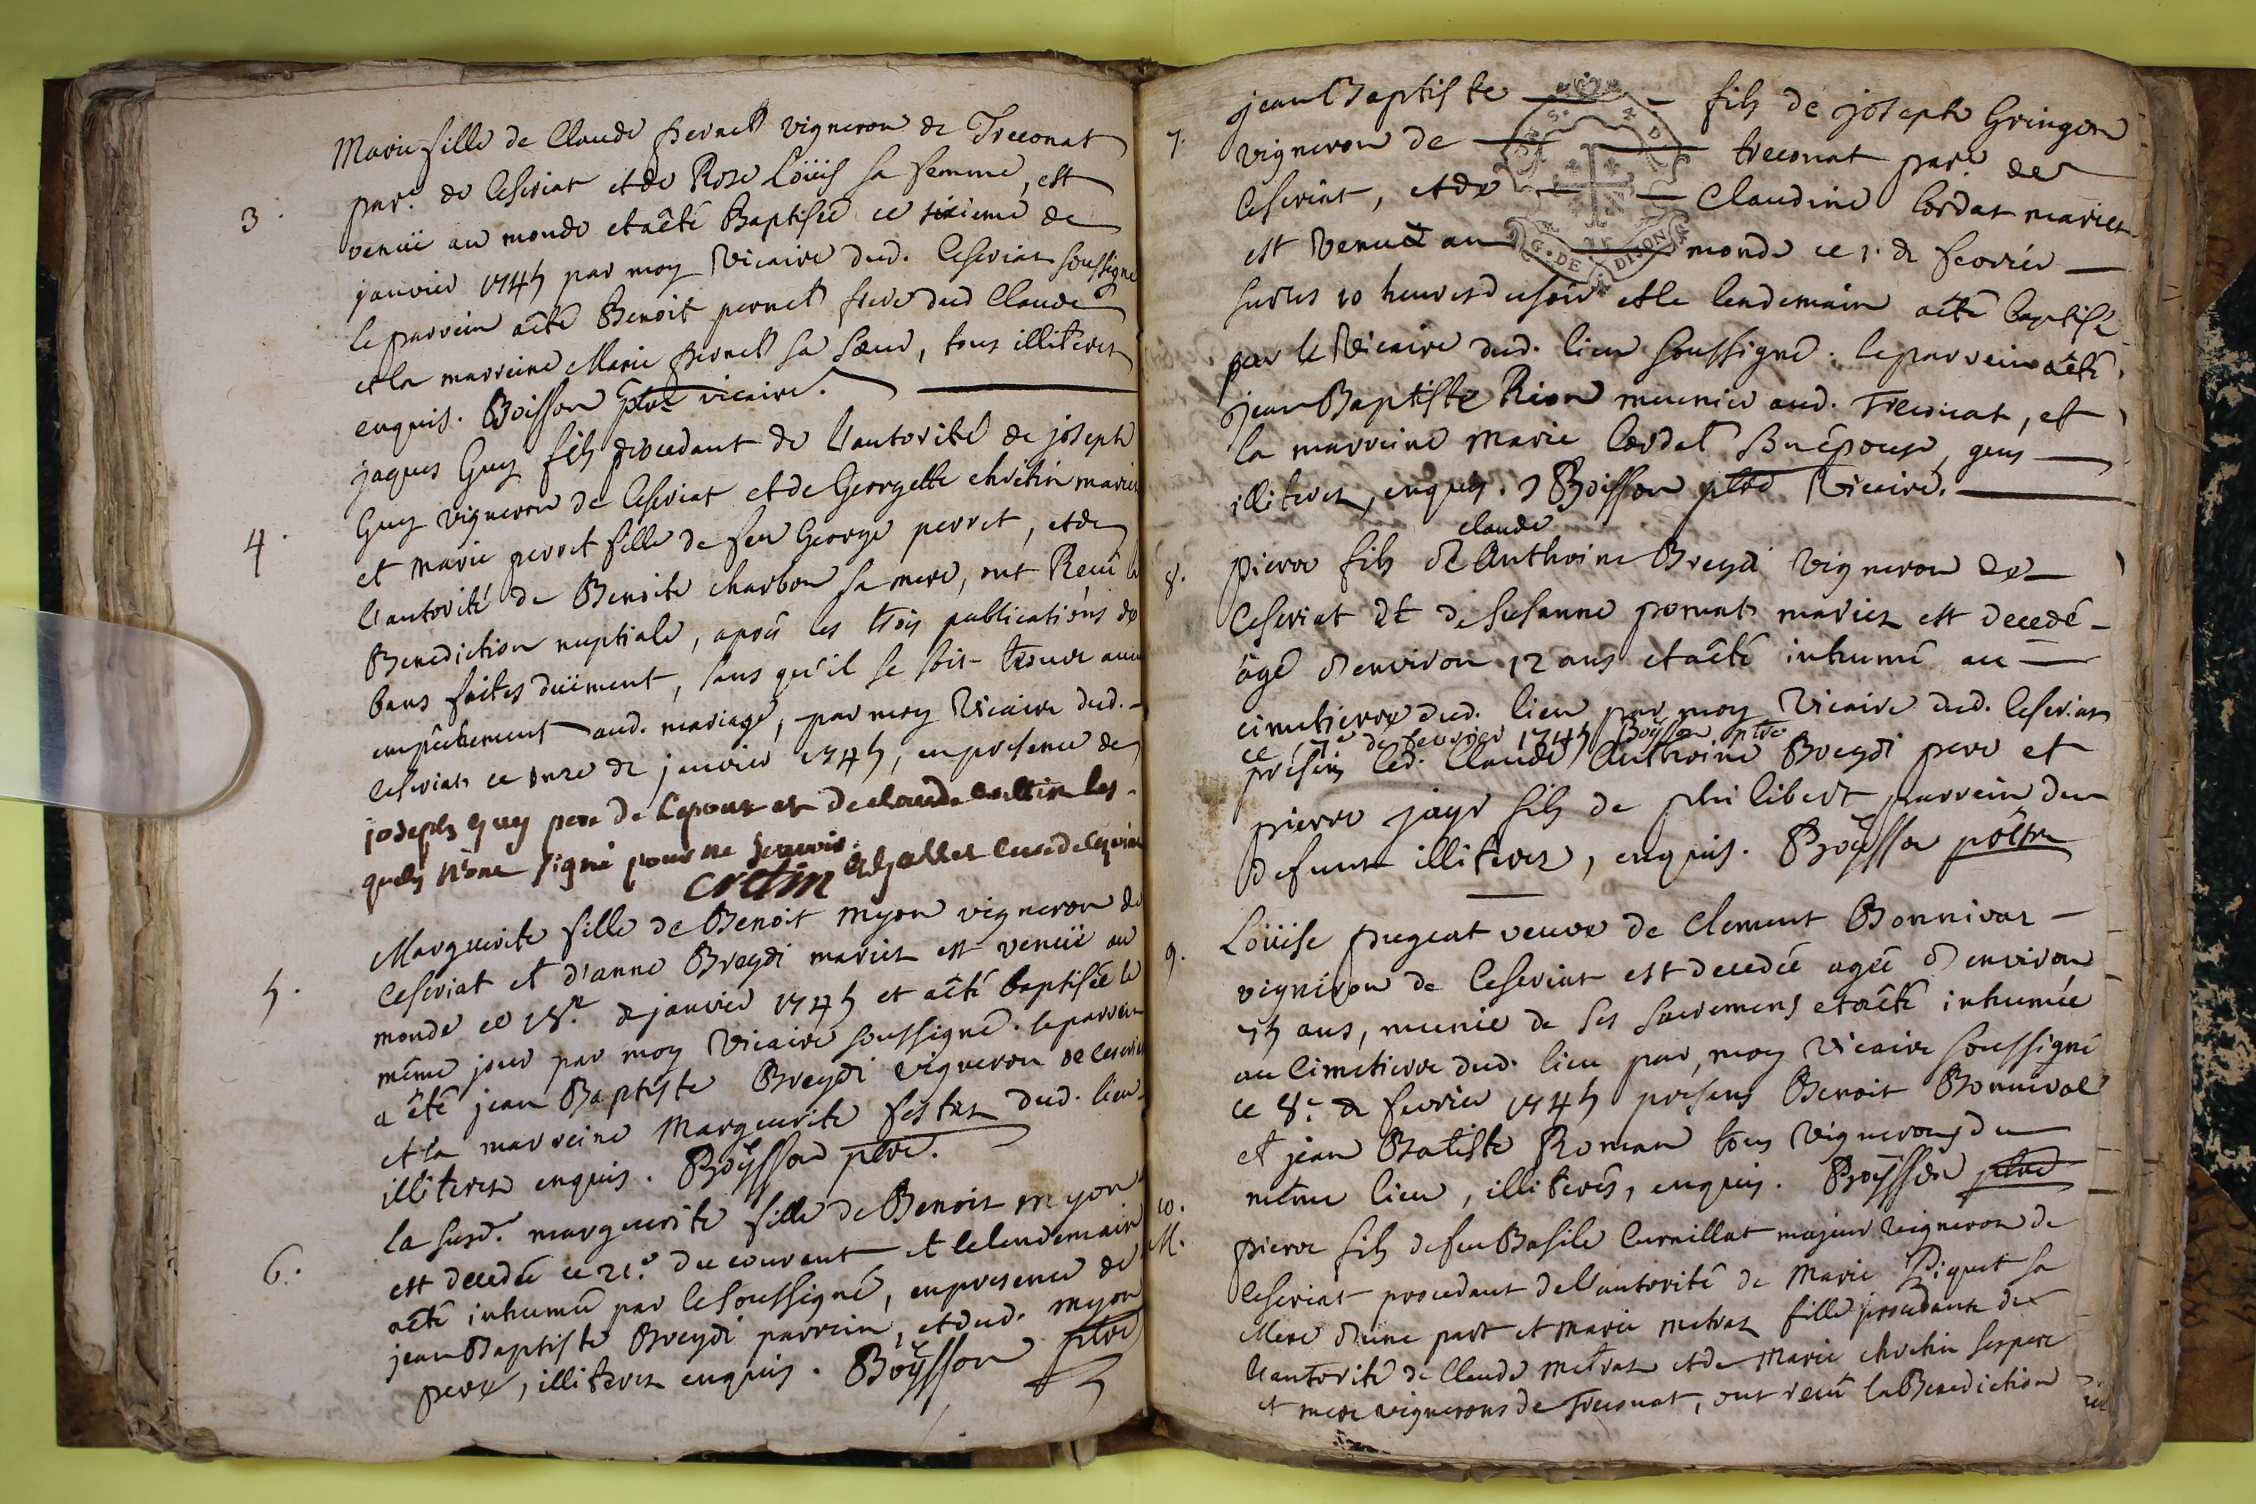 3.
Marie fille de Claude pernet vigneron de Treconat
par. de Ceseriat et de Rose Loüis sa femme, est
venüe au monde et a êtê Baptisée ce sixieme de
janvier 1745 par moy vicaire dud. Ceseriat soussigné
le parrein a êtê Benoit pernet frere dud Claude
et la marreine Marie pernet sa soeur, tous illiteres
enquis. Boisson ptre vicaire.
4.
jaques Guy fils procedant de l'autorité de joseph
Guy vigneron de Ceseriat et de Georgette chretin mariez
et marie perret fille de feu George perret, et de
l'autorité de Benoite charbon sa mere, ont Recû la
Benediction nuptiale, aprés les trois publications de
bans faites düement, sans qu'il se soit trouvé aucun
empêchement aud. mariage, par moy Vicaire dud.
Ceseriat ce onze de janvier 1745, en presence de
joseph guy pere de l'epoux et de claude les-
quels n'ont signé pour ne scavoir.
cretin
5.
Marguerite fille de Benoit myon vigneron de
Ceseriat et d'anne Breydi mariez est venüe au
monde ce 18.e de janvier 1745 et a êtê baptisée le
même jour par moy vicaire soussigné. le parrein
a êtê jean Baptiste Breydi vigneron de Ceseriat
et la marreine Marguerite festas dud. lieu
illiteres enquis. Boÿsson ptre.
6.
la susd. marguerite fille de Benoit myon
est decedée ce 21.e du courant et le lendemain
a êtê inhumée par le soussigné, en presence de
jean Baptiste Breydi parrein, et dud. myon
pere, illiteres enquis. Boÿsson ptre
7.
jean Baptiste fils de joseph Gringon
vigneron de treconat par. de
Ceseriat, et de Claudine Cordat mariez
est venue au monde ce 1. de fevrier
sur les 10 heures du soir et le lendemain a êtê baptisé
par le Vicaire dud. lieu soussigné. le parrein a êtê
jean Baptiste Rion meunier aud. Treconat, et
la marreine Marie Cordat son épouse, gens
illiteres, enquis. Boisson ptre Vicaire.
claude
8.
pierre fils d'Anthoine Breydi vigneron de
Ceseriat et de Susanne mariez est decedé
âgé d'environ 12 ans et a êtê inhumé au
cimetierre dud. lieu par moy Vicaire dud. Ceseriat
ce de fevrier 1745 Boysson ptre
presens led. Claude Anthoine Breydi pere et
pierre jayr fils de philibert parrein du
defunt illiteres, enquis. Boÿsson pêtre
9.
Loüise pugeat veuve de Clement Bonnivar
vigneron de Ceseriat est decedée agée d'environ
75 ans, munie de ses sacremens et a êtê inhumée
au Cimetierre dud. lieu par moy Vicaire soussigné
ce 8.e de fevrier 1745 presens Benoit Bonnivar
et jean Batiste Roman tous vignerons du
même lieu, illiterés, enquis. Boÿsson ptre
10.
M.
pierre fils de feu Basile Curnillat majeur vigneron de
Ceseriat procedant de l'autorité de Marie Piquet sa
Mere d'une part et Marie metras fille procedante de
l'autorité de Claude Metras et de Marie chretin ses pere
et mere vignerons de Treconat, ont recû la Benediction